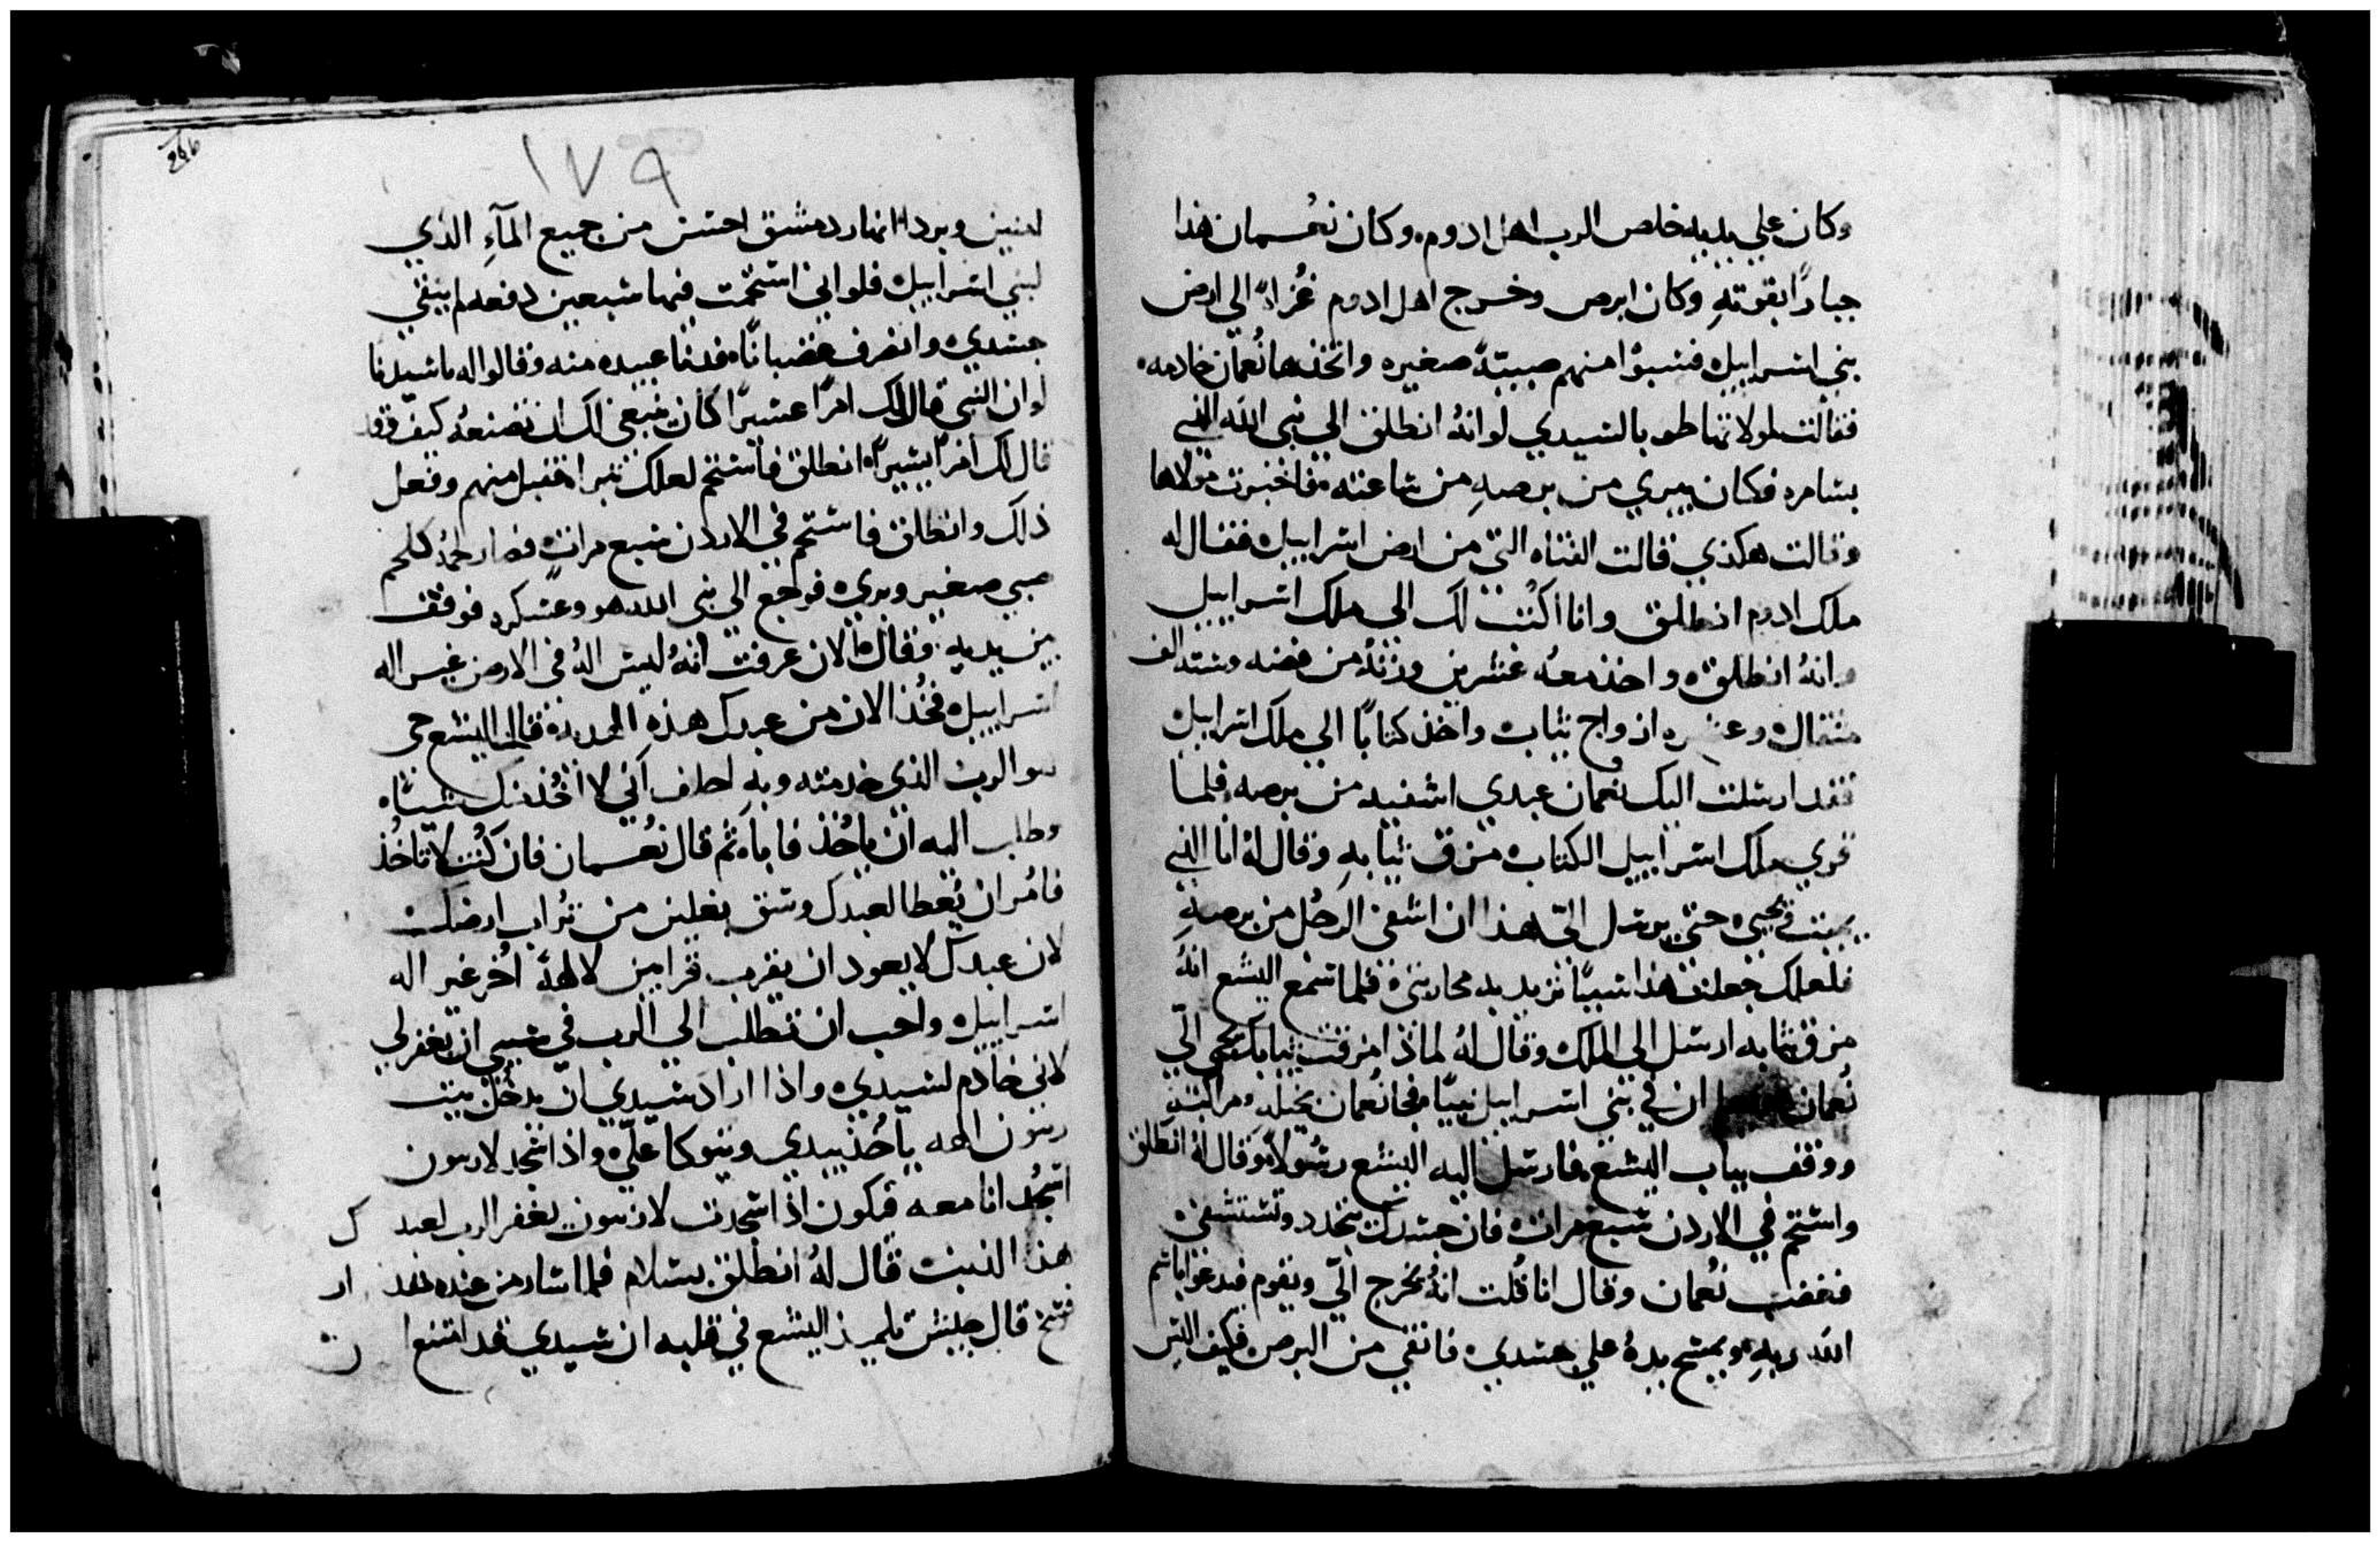 وكان علي يديه خلاص الرب اهل ادوم. وكان نعمان هذا
جبارًا بقوتهِ وكان ابرص وخرج اهل ادوم غُزاه الي ارض
بني اسراييل فسبوا منهم صبيةً صغيره واتخذها نُعمان خادمه
فقالت لمولاتها طوبا لسيدي لو انهُ انطلق الي نبي الله الذي
بشامره فكان يبري من برصهِ من ساعته فاخبرت مولاها
وقالت هكذي قالت الفتاه التي من ارض اسراييل فقال له
ملك ادوم انطلق وانا اكتب لك الي ملك اسراييل
وانهُ انطلق واخذ معهُ عشرين وزنةً من فضه وستة الف
مثقال وعشره ازواج ثياب واخذ كتابًا الي ملك اسراييل
فقد ارسلت اليك نعمان عبدي اشفيه من برصه فلما
قري ملك اسراييل الكتاب مزق ثيابهِ وقال لهُ انا الذي
يميت ويحيي حتي يرسل اليّ هذا ان اشفي الرجُل من برصهِ
فلعلك جعلت هذا سببًا تريد به محاربتي فلما سمع اليشع انهُ
مزق ثيابه ارسل الي الملك وقال لهُ لماذا مزقت ثيابك يجي اليّ
نُعمان ان في بني اسراييل نبيًا فجا نُعمان بخيلهِ ومراكبهِ
ووقف بباب اليشع فارسل اليه اليشع رسُولاً وقال لهُ انطلق
واستحم في الاردن سبع مرات فان جسدك يتجدد وتستشفي
فغضب نُعمان وقال انا قُلت انهُ يخرج اليّ ويقوم فيدعوا باسم
الله ربهِ ويمسح يدهُ علي جسدي فانقي من البرص فكيف اليس
١٧٩
انهار دمشق احسن من جميع المآءِ الذي
لبني اسراييل فلو اني استحمت فيها سبعين دفعه لم ينقي
جسدي وانصرف غضبانًا فدنا عبيده منه وقالوا له يا سيدنا
لو ان النبي قال لك امرًا عسرًا كان ينبغي لك ان تصنعهُ كيف وقد
قال لك امرًا يسيرًا انطلق فاستحم لعلك تبرا فقبل منهم وفعل
ذلك وانطلق فاستحم في الاردن سبع مرات فصار لحمهُ كلحم
صبي صغير وبري فرجع الي نبي الله هو وعسكره فوقف
بين يديه وقال الان عرفت انهُ ليس الهُ في الارض غير اله
اسراييل فخُذ الان من عبدك هذهِ قال اليشع حي
هو الرب الذي خدمته وبهِ احلف اني لا اخُذ منك شيئًا
وطلب اليه ان ياخُذ فاباه ثم قال نُعمان فان كُنت لا تاخُذ
فامُر ان يُعطا لعبدك وسق بغلين من تُراب ارضك
لان عبدك لا يعود ان يقرب قرابين لالهة اُخر غير اله
اسراييل واحب ان تطلب الي الرب في ان يغفر لي
لاني خادم لسيدي واذا اراد سيدي ان يدخُل بيت
الهه ياخُذ بيدي ويتوكا عليّ واذا سجد
اسجُد انا معه فيكون اذا سجدت يغفر الرب لعبدك
هذا الذنب قال لهُ انطلق بسلام فلما سار من عنده
فرسخ قال تلميذ اليشع في قلبه ان سيدي قد امتنع ان